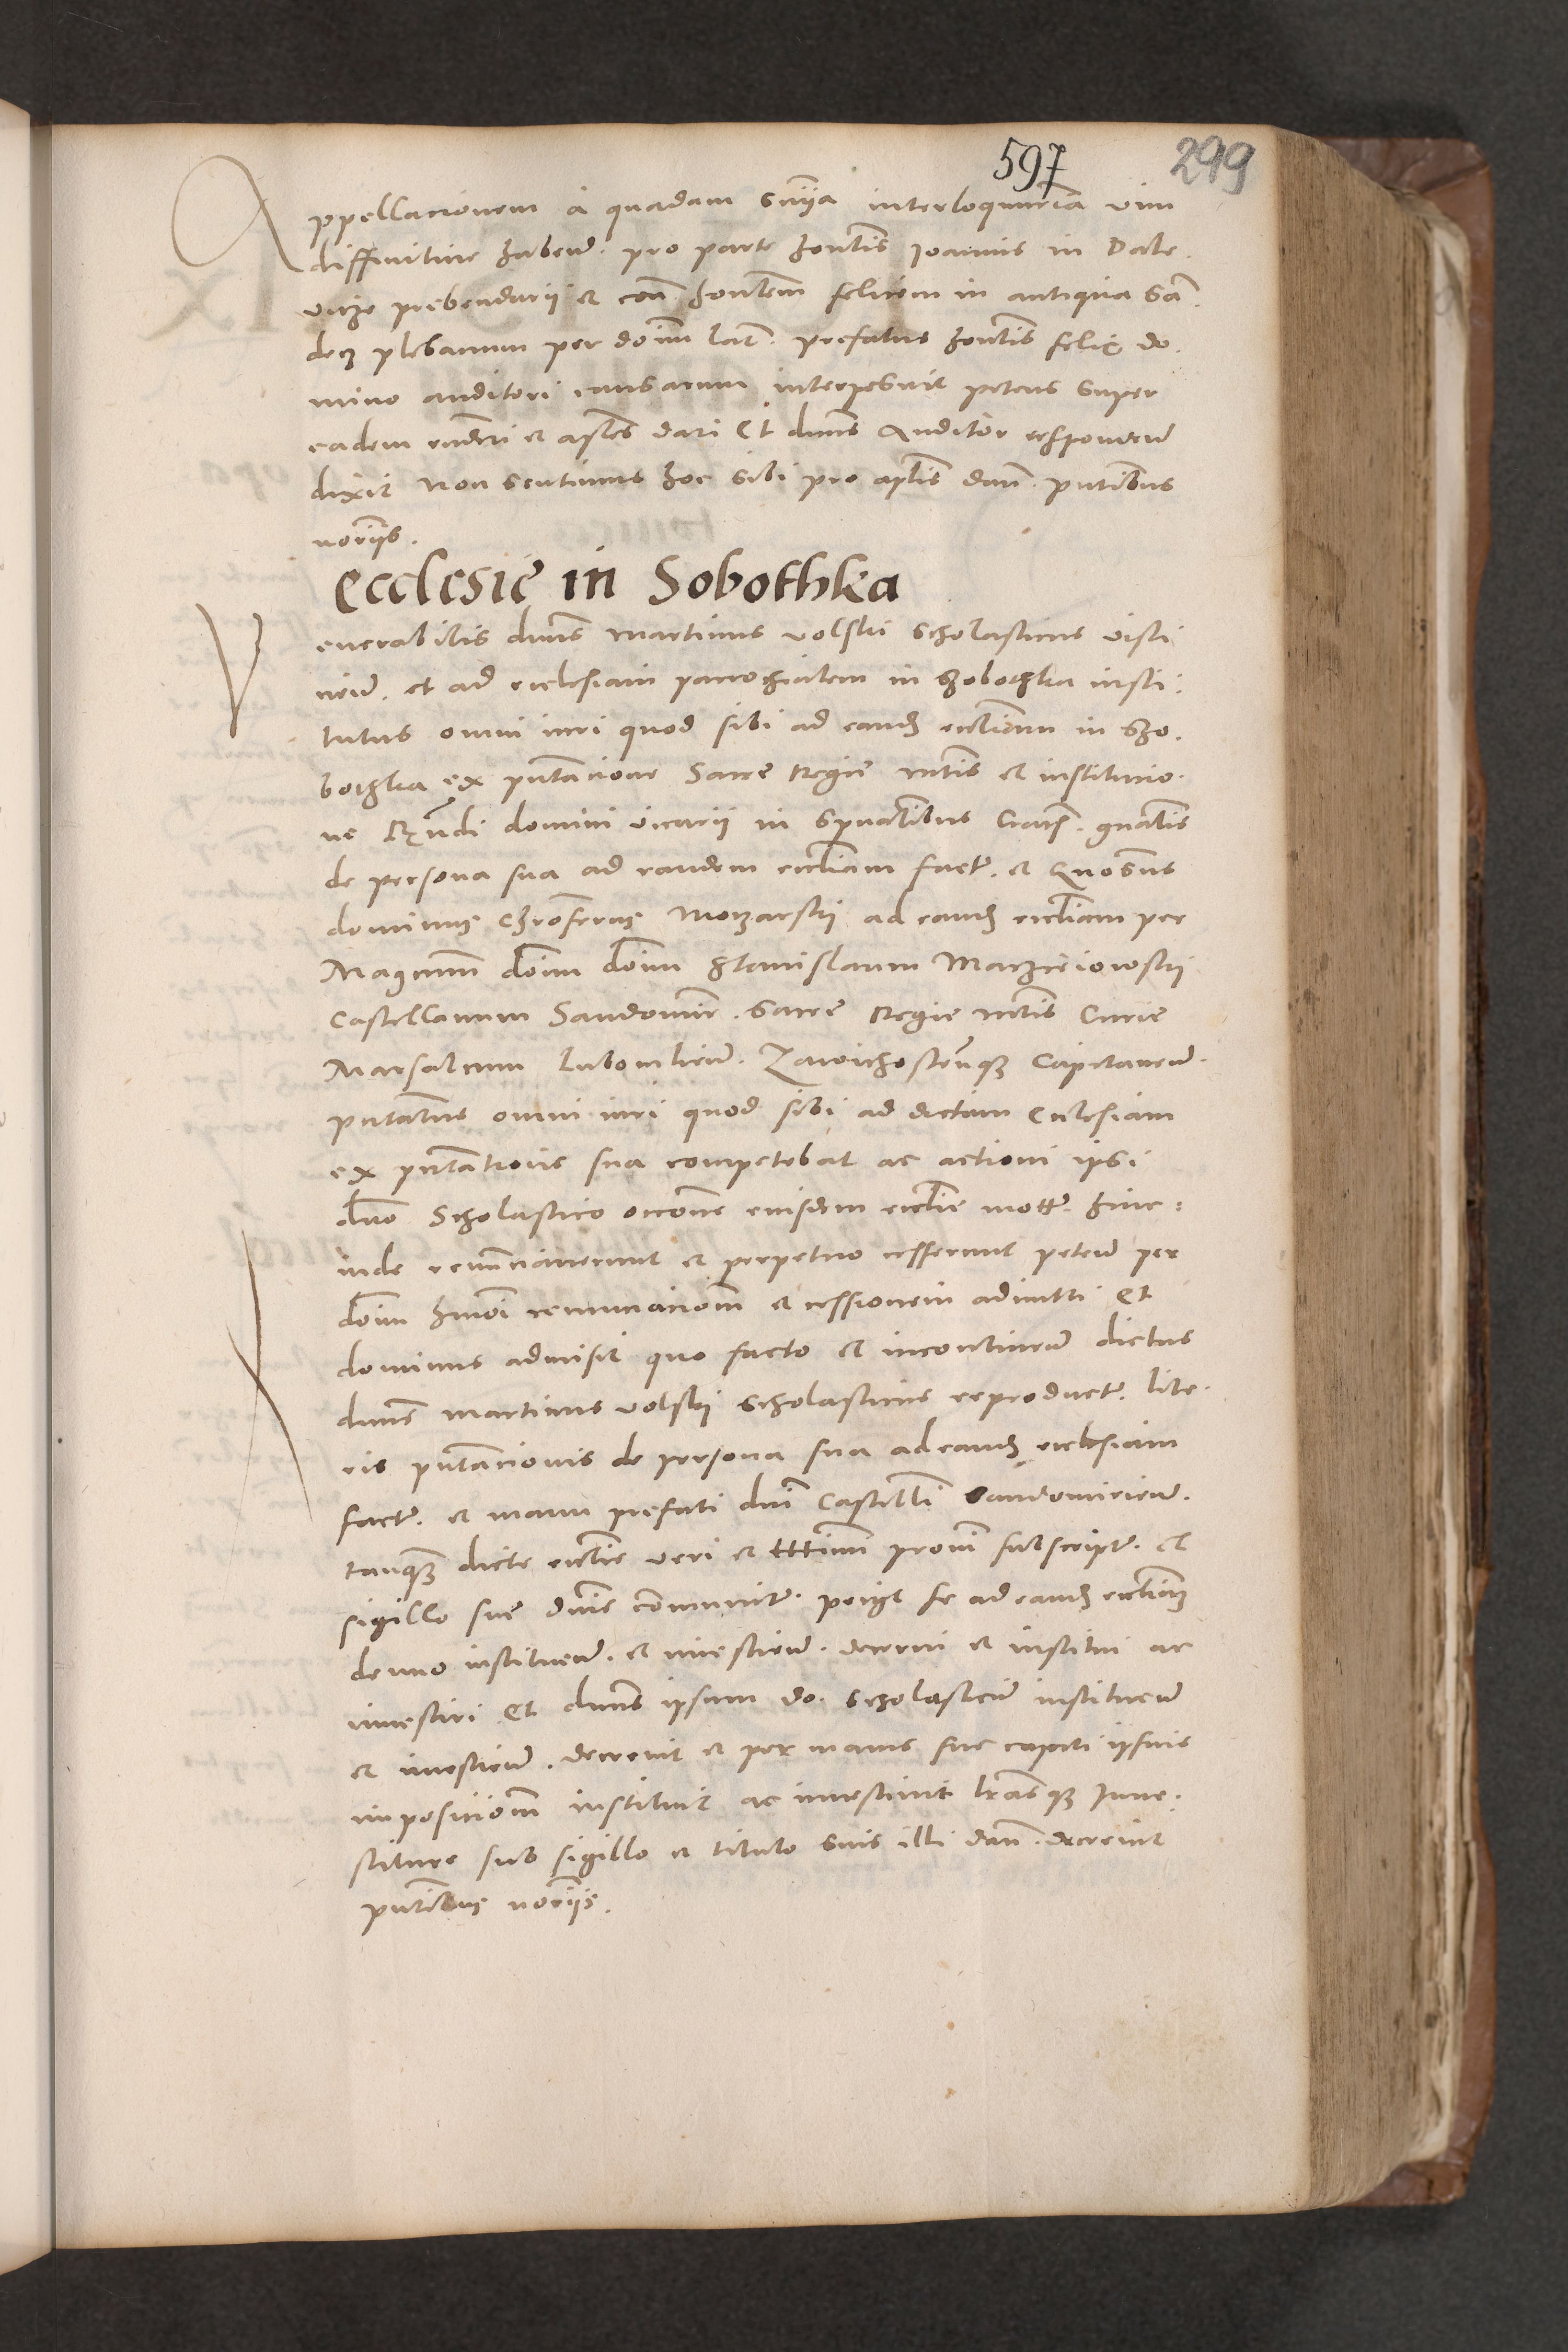 597 299
Appellacionem a quadam sniia interloqutoria vim
diffinitive habeñ. pro parte honlis Joannis in Dale
vicze prebendarii et con̄ honlem felicem in antiqua San
decz plebanum per doim lat. prefatus honlis felix do
mino auditori causarum interposuit petens super
eadem rnderi et aplos dari Et dnus Auditor respondeñ
dixit Non sentimus hoc sibi pro aplis dan̄. pntibus
noriis.
Ecclesie in Sobothka
Venerabilis dnus Martinus volski Scholasticus visli
cieñ. et ad ecclesiam parrochialem in Szobothka insti
tutus omni iuri quod sibi ad eand eccliam in Szo
bothka ex pntacione Sacre Regie mtis et institucio
ne Rndi domini vicarii in Spualibus Crac. gnalis
de persona sua ad eandem eccliam fact. et Gnosus
dominus Chroferus Moczarski ad eand eccliam per
Magcum doim doim Stanislaum Maczieiowski
Castellanum Sandomir. Sacre Regie mtis Curie
Marsalcum Lubomlieñ. Zawichostenq Capitaneum
pntatus omni iuri quod sibi ad dictam Ecclesiam
ex pntatione sua competebat ac actioni ipsi
dno Scholastico occone eiusdem ecclie mott. hinc
inde renunciaverunt et perpetuo cesserunt peteñ per
doim hmoi renunciacionem et cessionem admitti Et
dominus admisit quo facto et incontineñ dictus
dnus Martinus volski Scholasticus reproductis lite
ris pntacionis de persona sua ad eand ecclesiam
fact. et manu prefati dni Castellani Sandomirieñ.
tanq dicte ecclie veri et lttimi proni subscript. et
sigillo sue Dnis communit. petiit se ad eand eccliam
denuo instituen. et investien. decerni et institui ac
investiri Et dnus ipsum do. Scholasticum instituen
et investien. decrevit et per manus sue capiti ipsius
imposicionem instituit ac investivit lrasq Inve
stiture sub sigillo et titulo suis illi dan̄. decrevit
pntibus noriis.